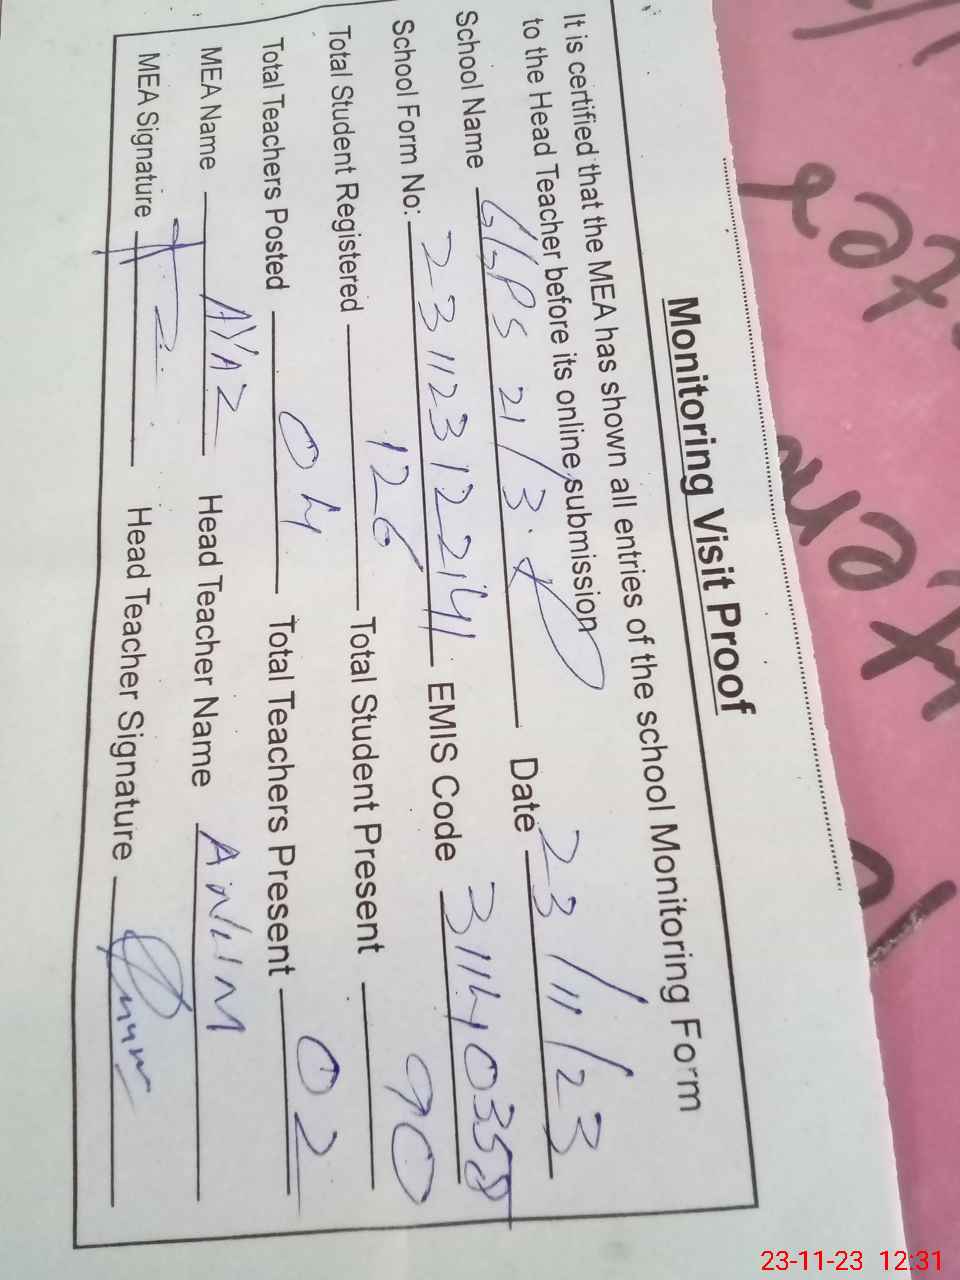 Monitoring Visit Proof
It is certified that the MEA has shown all entries of the school Monitoring Form
to the Head Teacher before its online submission
School Name GGPS 21/3.R Date 23/11/23
School Form No: 231123122141 EMIS Code 31140358
Total Student Registered 126 Total Student Present 90
Total Teachers Posted 04 Total Teachers Present 02
MEA Name AYAZ Head Teacher Name
MEA Signature Head Teacher Signature
23-11-23 12:31